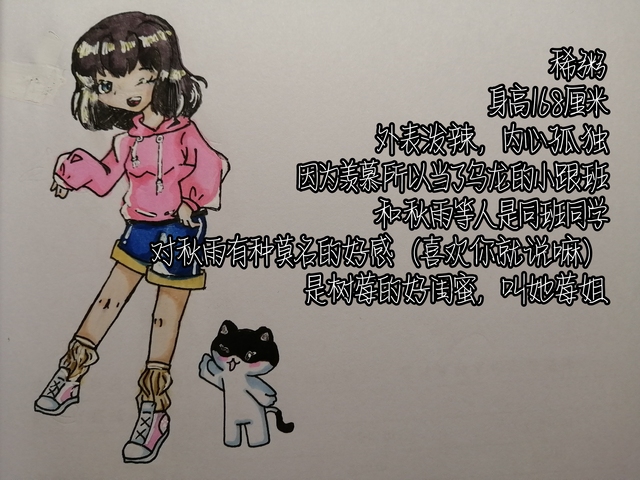 稀粥
身高168厘米
外表泼辣，内心孤独
因为羡慕所以当了乌龙的小跟班
和秋雨等人是同班同学
对秋雨有种莫名的好感（喜欢你就说嘛）
是树莓的好闺蜜，叫她莓姐